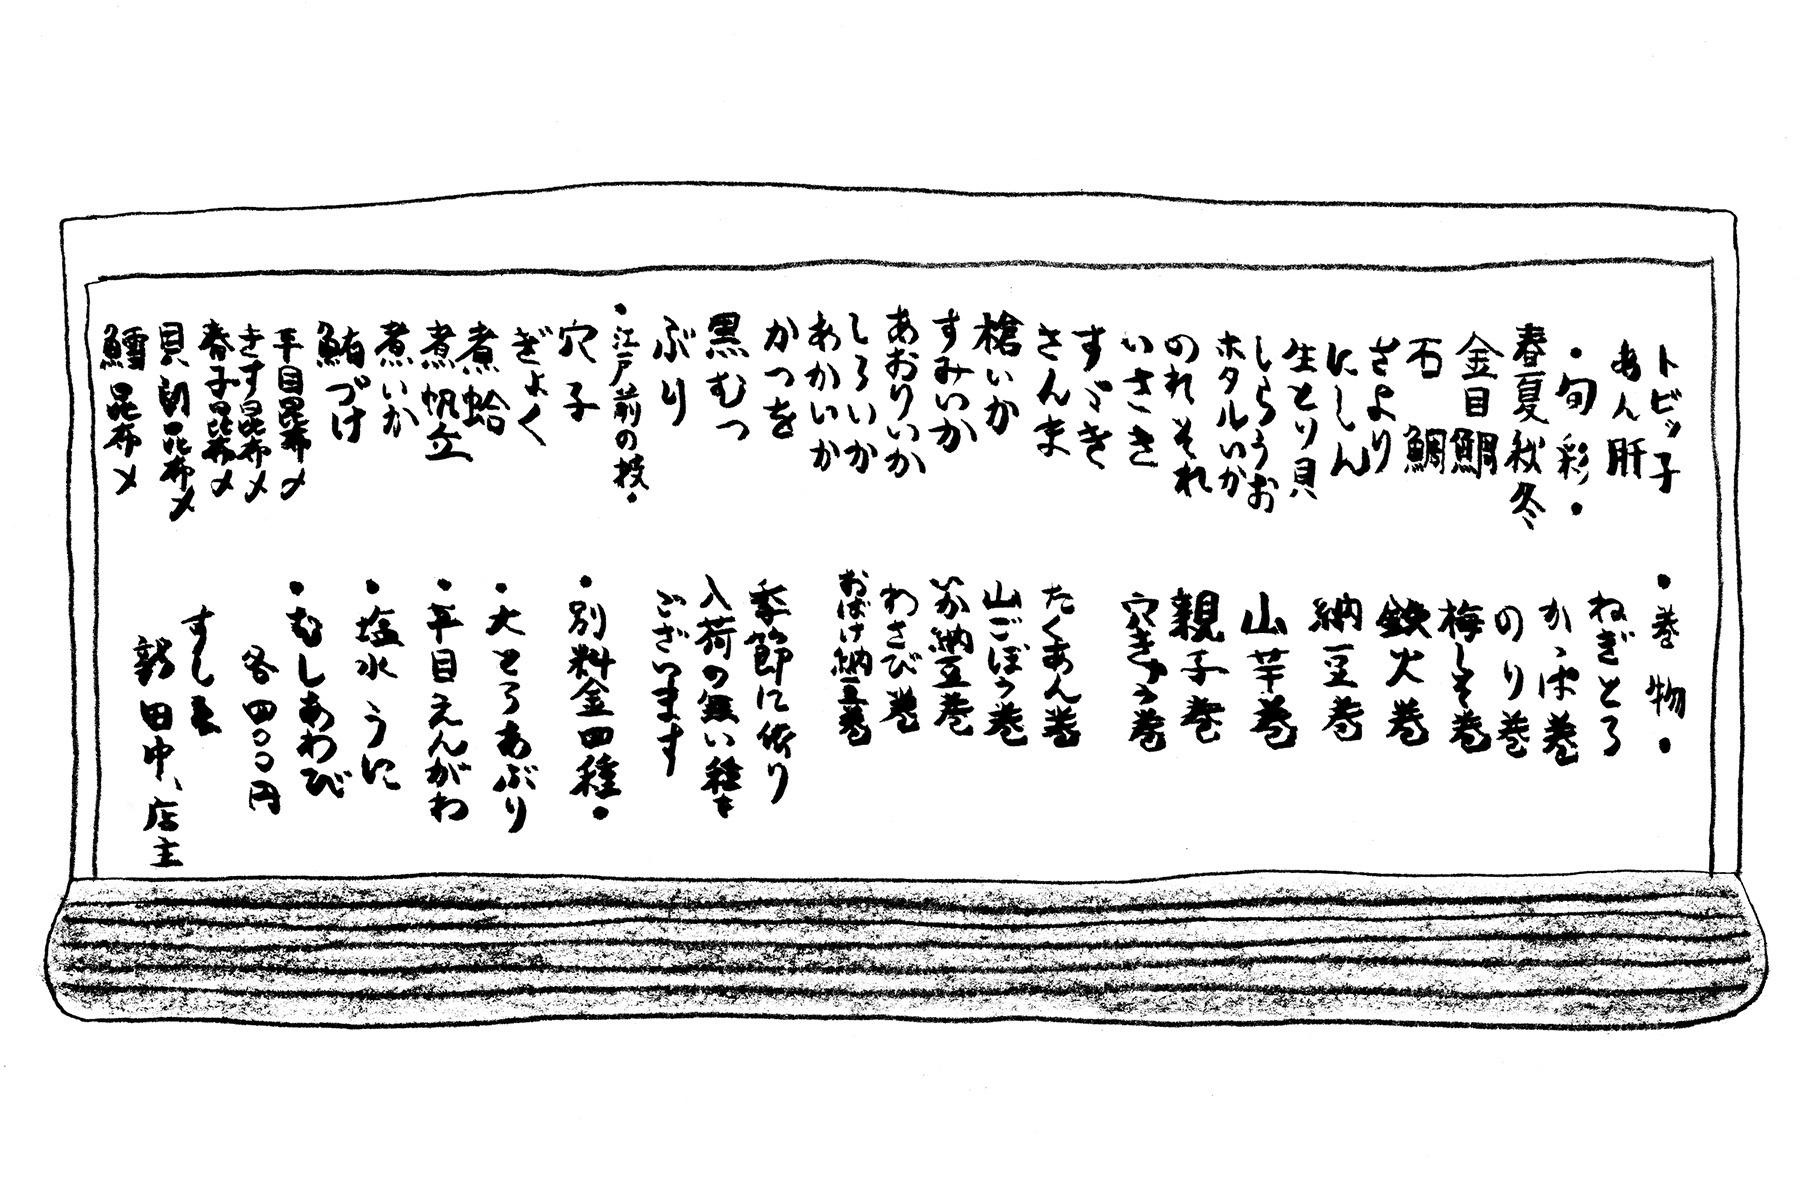 トビッ子
あん肝
・旬彩・
春夏秋冬
金目鯛
石鯛
さより
にしん
生とり貝
しらうお
ホタルいか
のれそれ
いさき
すゞき
さんま
槍いか
すみいか
あおりいか
しろいか
あかいか
かつを
黒むつ
ぶり
・江戸前の技・
穴子
ぎょく
煮蛤
煮帆立
煮いか
鮪づけ
平目昆布〆
きす昆布〆
春子昆布〆
貝割昆布〆
鱈昆布〆
・巻物・
ねぎとろ
かっぱ巻
のり巻
梅しそ巻
鉄火巻
納豆巻
山芋巻
親子巻
穴きゅう巻
たくあん巻
山ごぼう巻
いか納豆巻
わさび巻
おばけ納豆巻
季節に依り
入荷の無い種も
ございます
・別料金四種・
・大とろあぶり
・平目えんがわ
・塩水うに
・むしあわび
各四〇〇円
すし
田中、店主